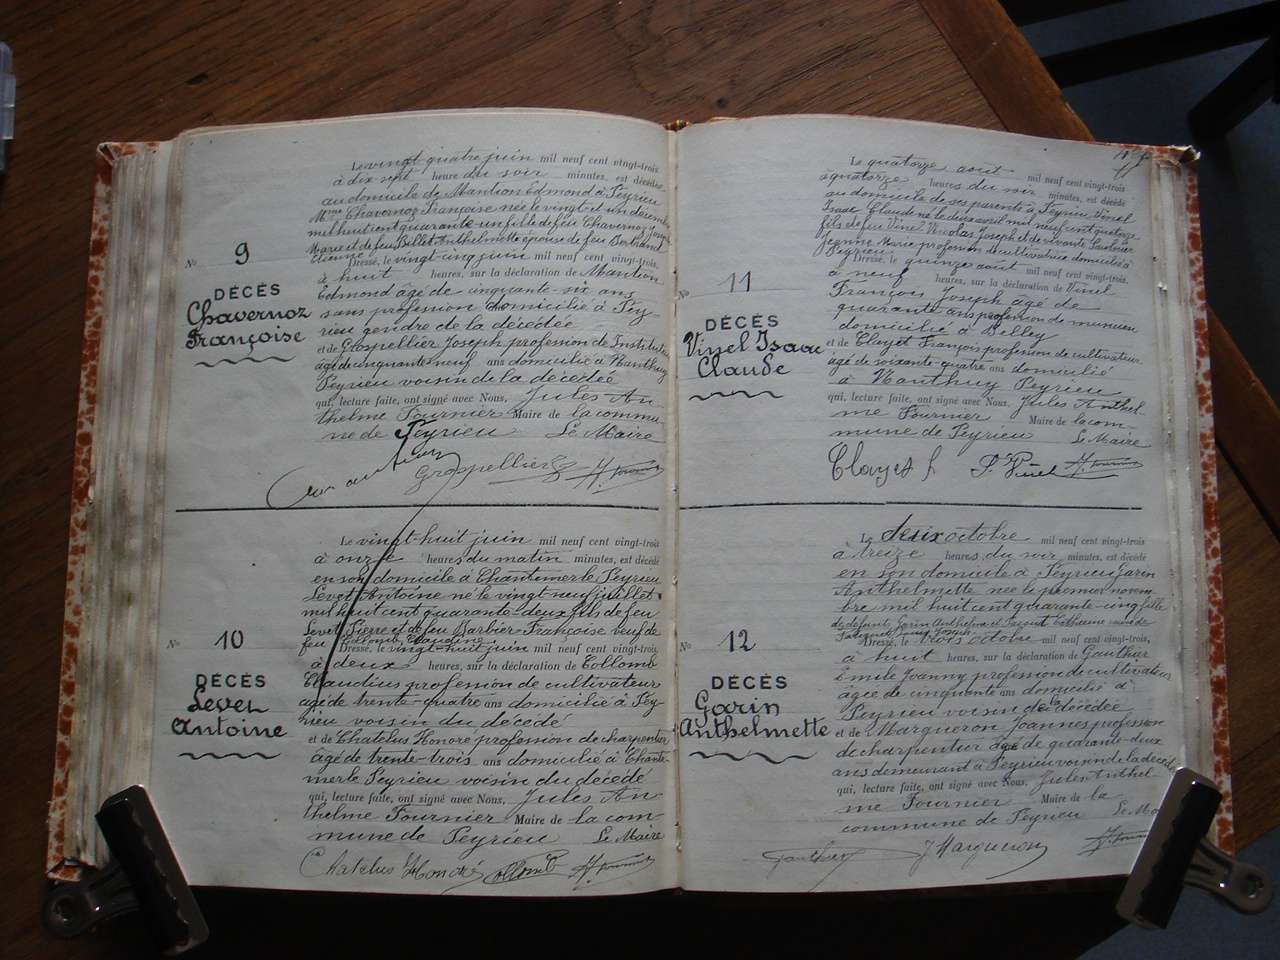 Le vingt quatre juin mil neuf cent vingt-trois
à dix sept heure du soir minutes, est décédée
au domicile de Mantion Edmond à Peyrieu
Mme Chavernoz Françoise née le vingt et un decembre
mil huit cent quarante-un fille de feu Chavernoz Joseph
Marie et de feu Billet Anthelmette épouse de feu Bertrand
Etienne. Dressé, le vingt-cinq juin mil neuf cent vingt-trois,
N° 9
à huit heures, sur la déclaration de Mantion
Edmond âgé de cinquante-six ans
DÉCÈS
sans profession domicilié à Pey-
Chavernoz
rieu gendre de la décédée
Françoise
et de Grospellier Joseph profession de Instituteur
âgé de cinquante-neuf ans domicilié à Nanthuy
Peyrieu voisin de la décédée
qui, lecture faite, ont signé avec Nous, Jules An-
thelme Fournier Maire de la commu-
ne de Peyrieu Le Maire
Grospellier J. Fournier
Le vingt-huit juin mil neuf cent vingt-trois
à onze heures du matin minutes, est décédé
en son domicile à Chantemerle Peyrieu
Levet Antoine né le vingt neuf juillet
mil huit cent quarante-deux fils de feu
Levet Pierre et de feu Barbier Françoise veuf de
feu Collomb Claudine
N° 10
Dressé, le vingt-huit juin mil neuf cent vingt-trois,
à deux heures, sur la déclaration de Collomb
DÉCÈS
Claudius profession de cultivateur
Levet
âgé de trente-quatre ans domicilié à Pey-
Antoine
rieu voisin du décédé
et de Chatelus Honoré profession de charpentier
âgé de trente-trois ans domicilié à Chante-
merle Peyrieu voisin du décédé
qui, lecture faite, ont signé avec Nous, Jules An-
thelme Fournier Maire de la com-
mune de Peyrieu Le Maire
Chatelus Honoré Collomb J. Fournier
Le quatorze août mil neuf cent vingt-trois
à quatorze heures du soir minutes, est décédé
au domicile de ses parents à Peyrieu Vinel
Isaac Claude né le dix avril mil neuf cent quatorze
fils de feu Vinel Nicolas Joseph et de vivante
Jeanne Marie profession de cultivatrice domiciliée à
Peyrieu Dressé, le quinze août mil neuf cent vingt-trois,
N° 11
à neuf heures, sur la déclaration de Vinel
François Joseph âgé de
DÉCÈS
quarante ans profession de
Vinel Isaac
domicilié à Belley
Claude
et de Clayet François profession de cultivateur
âgé de soixante-quatre ans domicilié
à Nanthuy Peyrieu
qui, lecture faite, ont signé avec Nous, Jules Anthel-
me Fournier Maire de la com-
mune de Peyrieu Le Maire
Clayet f J. Vinel J. Fournier
Le deux octobre mil neuf cent vingt-trois
à treize heures du soir minutes, est décédé
en son domicile à Peyrieu Garin
Anthelmette née le premier novem-
bre mil huit cent quarante-cinq fille
de défunt Garin Anthelme et
N° 12
Dressé, le trois octobre mil neuf cent vingt-trois,
à huit heures, sur la déclaration de Gauthier
DÉCÈS
Emile Joanny profession de cultivateur
Garin
âgée de cinquante ans domicilié à
Anthelmette
Peyrieu voisin de la décédée
et de Margueron Joannes profession
de charpentier âgé de quarante-deux
ans demeurant à Peyrieu voisin de la décédée
qui, lecture faite, ont signé avec Nous, Jules Anthel-
me Fournier Maire de la
commune de Peyrieu Le Ma
Gauthier J Margueron J. Fournier